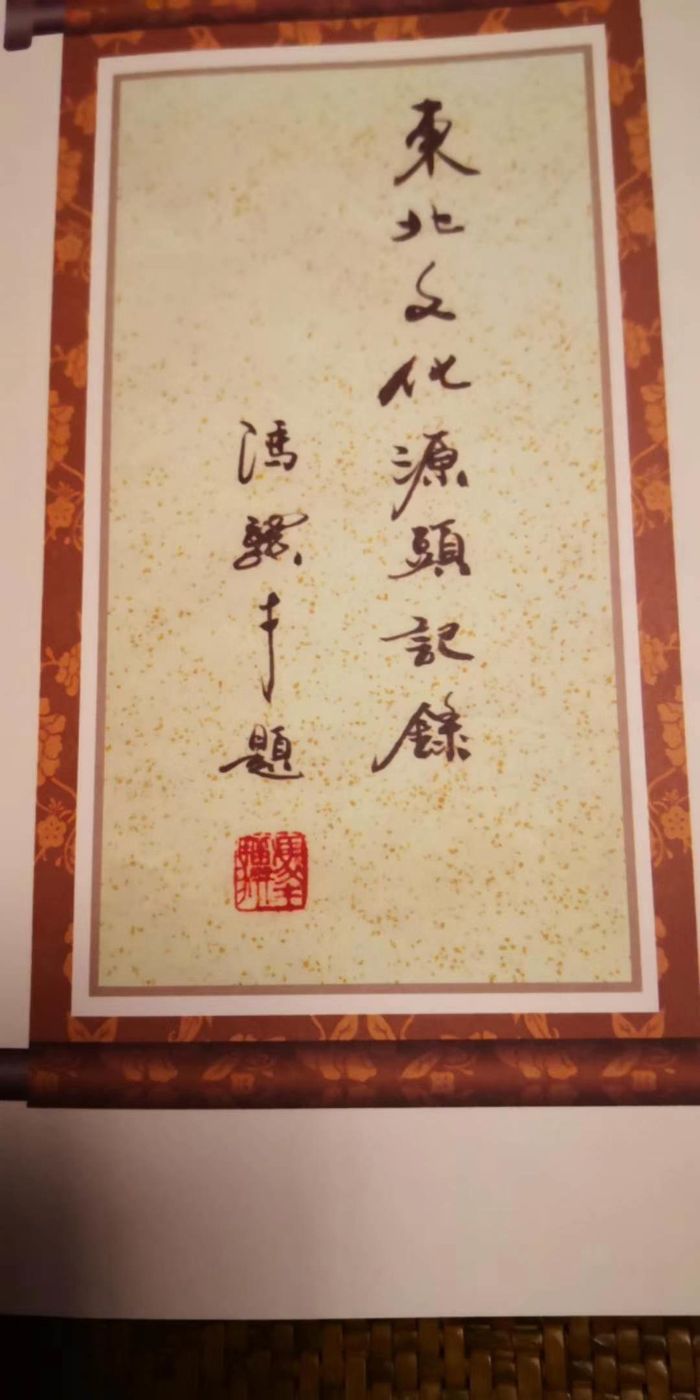 東北文化源頭記錄
馮驥才題